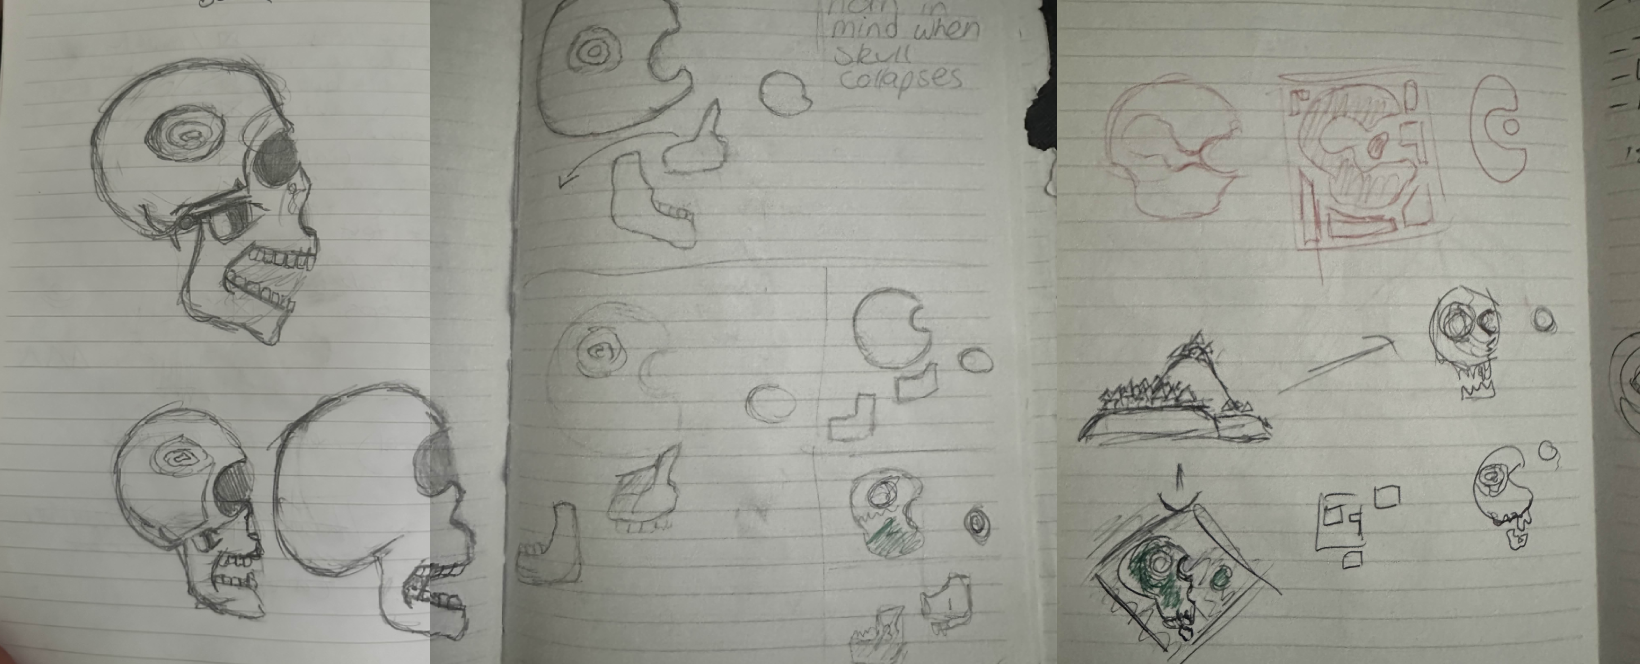 horn in
mind when
skull
collapses